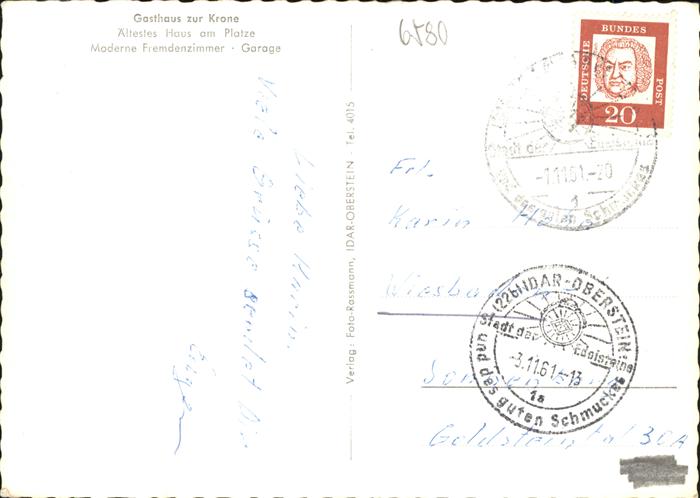 Gasthaus zur Krone
Ältestes Haus am Platze
Moderne Fremdenzimmer · Garage
6580
DEUTSCHE BUNDES POST
20
Stadt der Edelsteine
-7.11.61.-20
1
und des guten Schmuckes
Liebe Karin.
Viele Grüsse sendet Dir
Verlag: Foto-Rassmann, IDAR-OBERSTEIN Tel. 4015
Frl.
Karin
Wiesbaden
(22b) IDAR-OBERSTEIN
Stadt der Edelsteine
-3.11.61.-13
1a
und des guten Schmuckes
Goldsteintal 30A